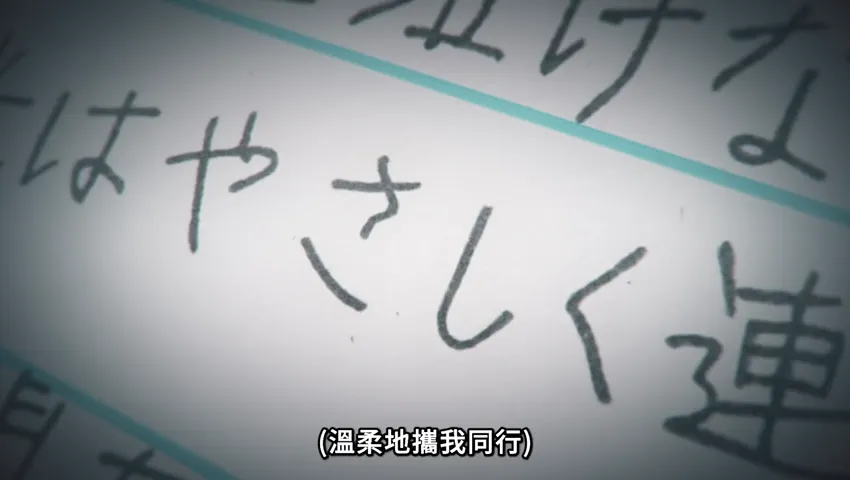 けな
はやさしく連
(溫柔地攜我同行)